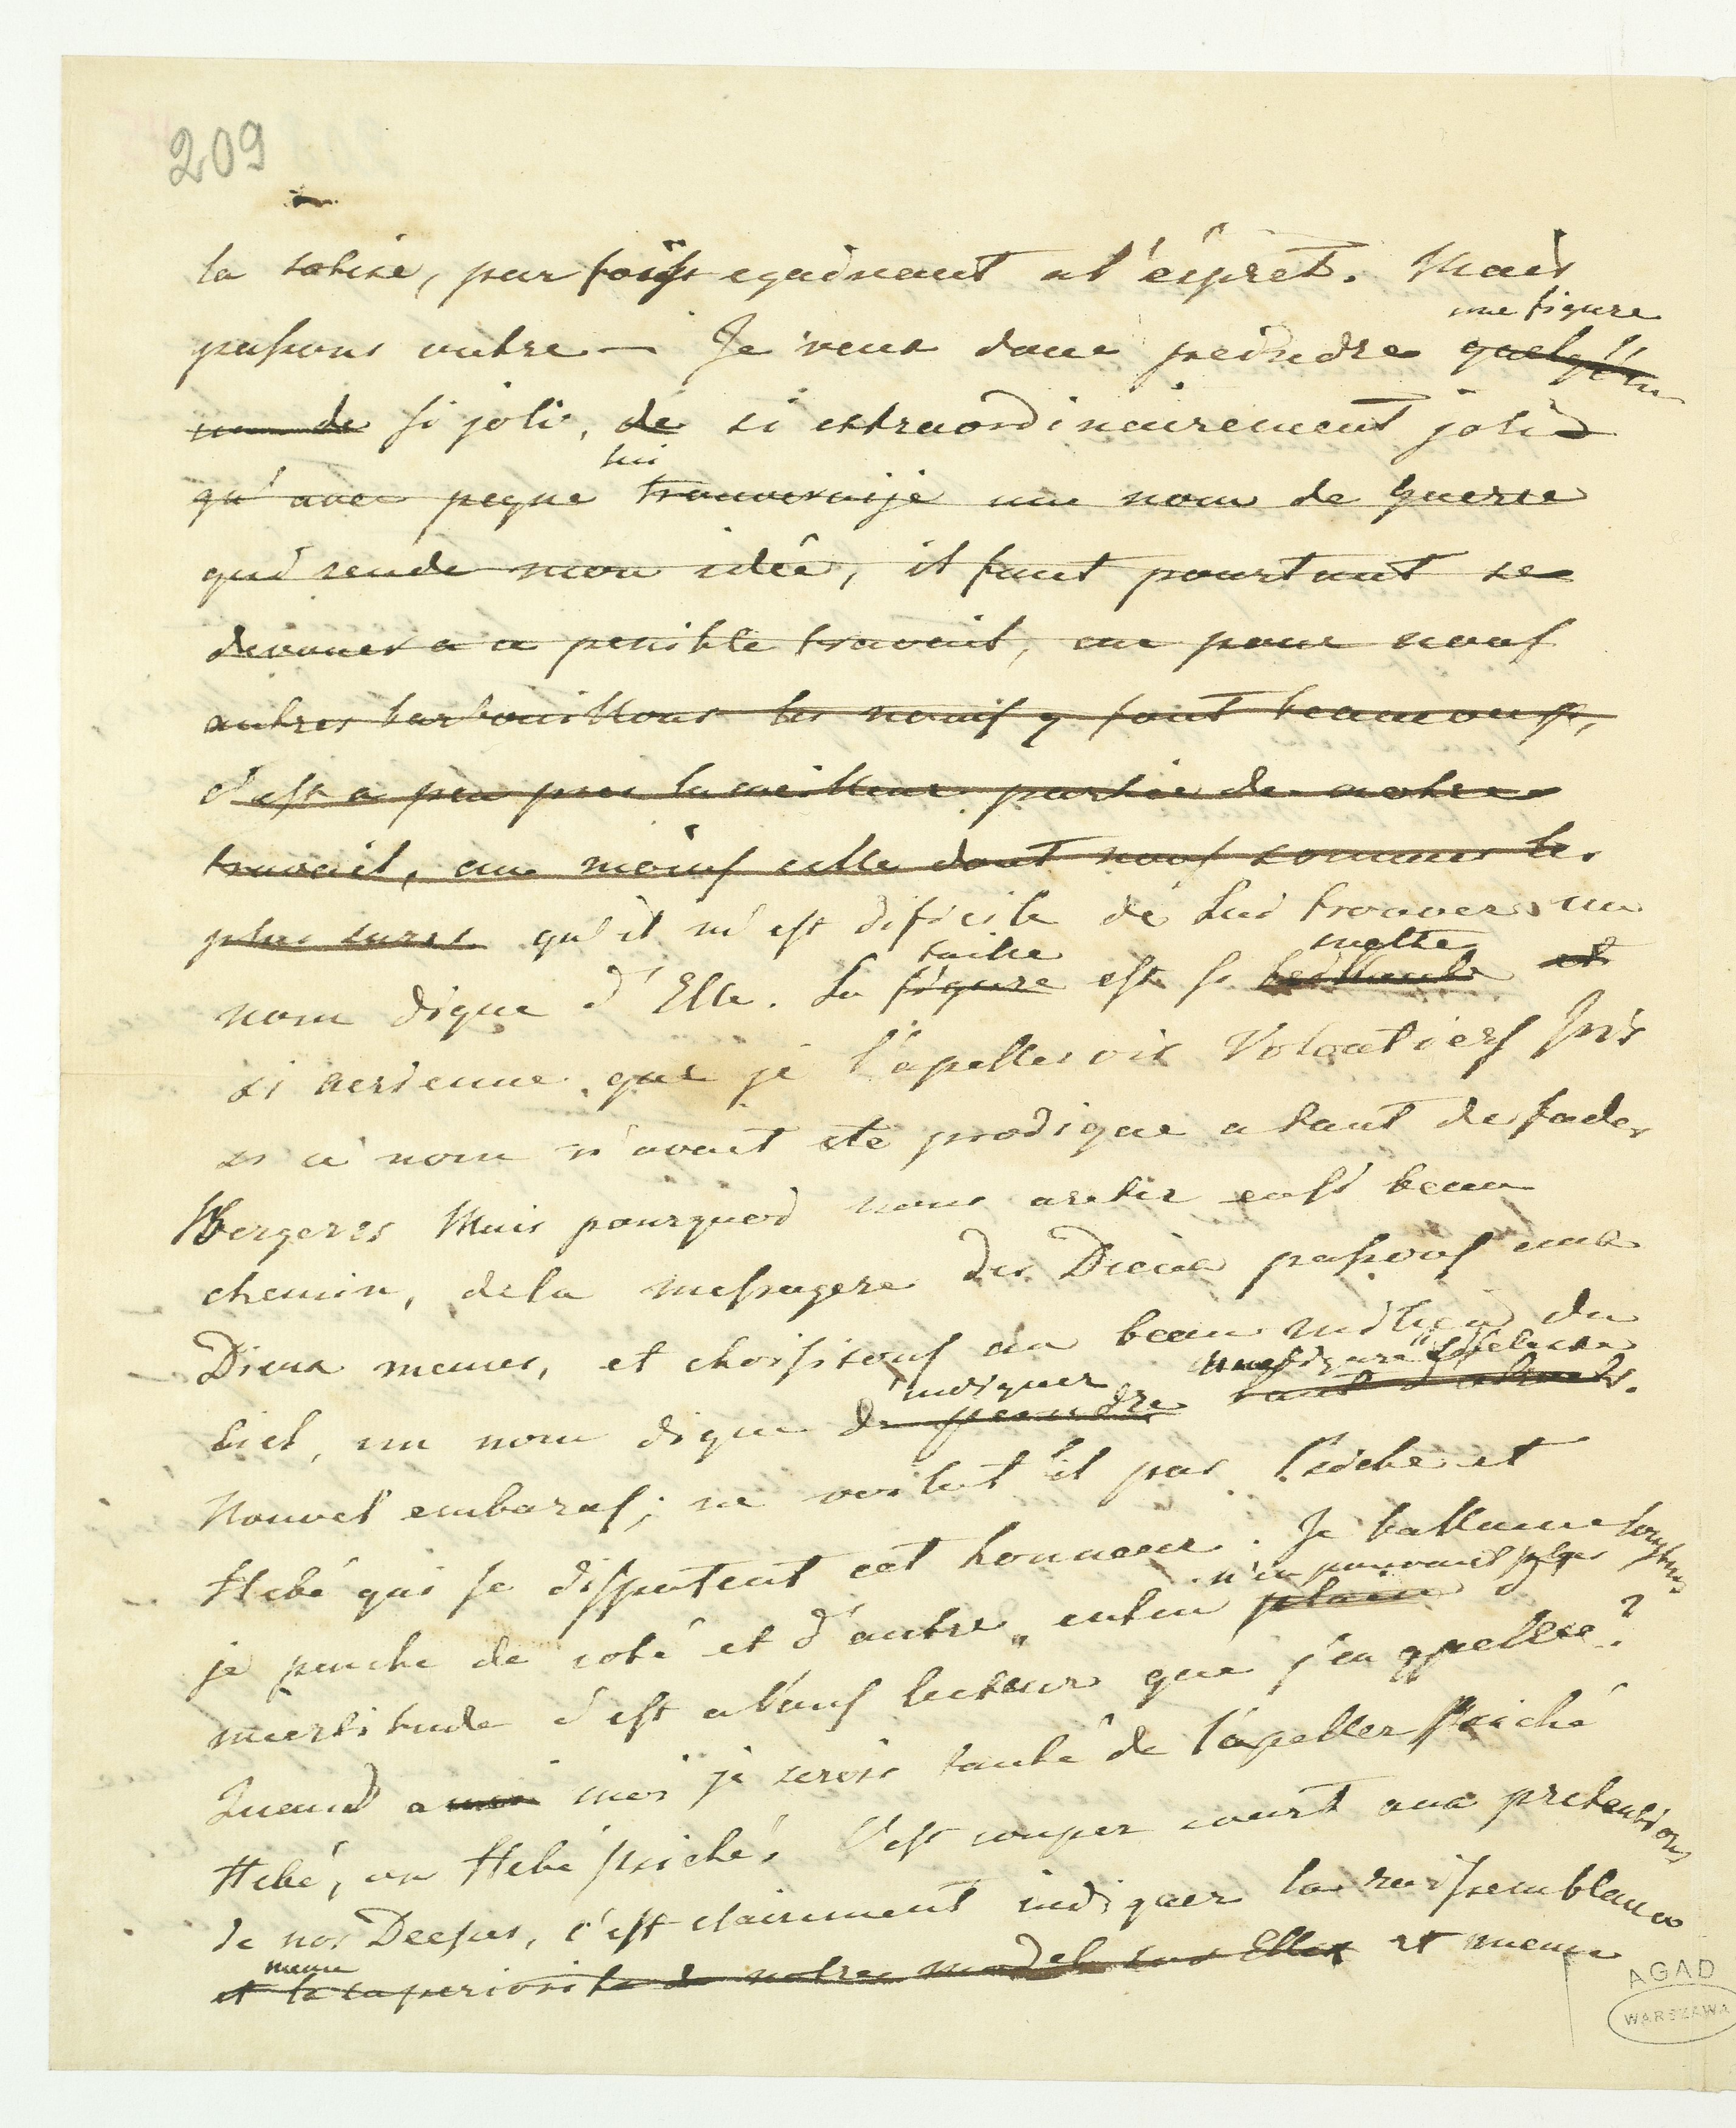 209
la sotise, par fois egaisent a l'ésprit. Mais
une figure
passons outre — Je veux donc peindre quelqu'un
un de si joli, de si extraordinairement joli
lui
qu'avec peyne trouveraije un nom de guerre
qui rende mon idêe, il faut pourtant se
devouer a ce penible travail, car pour nous
autres barbouillons les noms y font beaucoup,
c'est a peu pres la meilleure partie de notre
travail, au moins celle dont nous sommes les
plus sures qu'il m'est dificile de Lui trouver un
taille svelte
nom digne d'Elle. Sa figure est si et
si aerienne que je l'apellerois Volontiers Iris
si ce nom n'avait été prodigué a tant de fades
Bergeres Mais pourquoi nous aretir en si beau
chemin, dela messagere des Dieux passons aux
Dieux memes, et choisisons au beau milieu du
indiquer une figure celeste
Ciel, un nom digne de peindre tant d'atraits.
Nouvel embaras; ne voilat'il pas Psiché et
Hebé qui se disputent cet honneur. Je balance longtems
n'en pouvant plus
je penche de coté et d'autre, enfin plein d'
incertitude c'est a Vous lecteur que j'en appelle?
Quand a moi moi je serois tenté de l'apeller Psiché
Hebé, ou Hebé Psiché. C'est couper court aux pretentions
de nos Deeses, c'est clairement indiquer la ressemblance
meme
et la superiorite de notre modele sur Elles et meme
AGAD
WARSZAWA